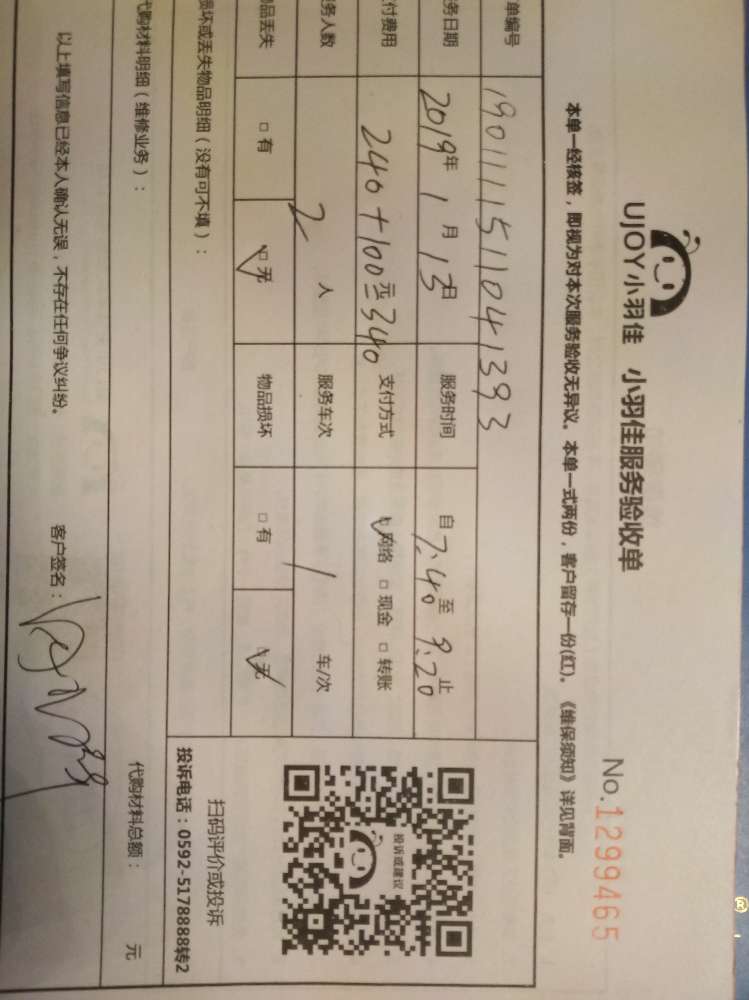 UJOY小羽佳 小羽佳服务验收单
No.1299465
本单一经核签，即视为对本次服务验收无异议。本单一式两份，客户留存一份(红)。《维保须知》详见背面。
单编号 1901111511041393
务日期 2019年1月13日 服务时间 自7:40至9:20止
付费用 240+100元=340 支付方式 ☑网络 □现金 □转账
务人数 2人 服务车次 1车/次
物品丢失 □有 ☑无 物品损坏 □有 ☑无
损坏或丢失物品明细（没有可不填）：
代购材料明细（维修业务）：
代购材料总额： 元
以上填写信息已经本人确认无误，不存在任何争议纠纷。 客户签名：
投诉或建议
扫码评价或投诉
投诉电话：0592-5178888转2